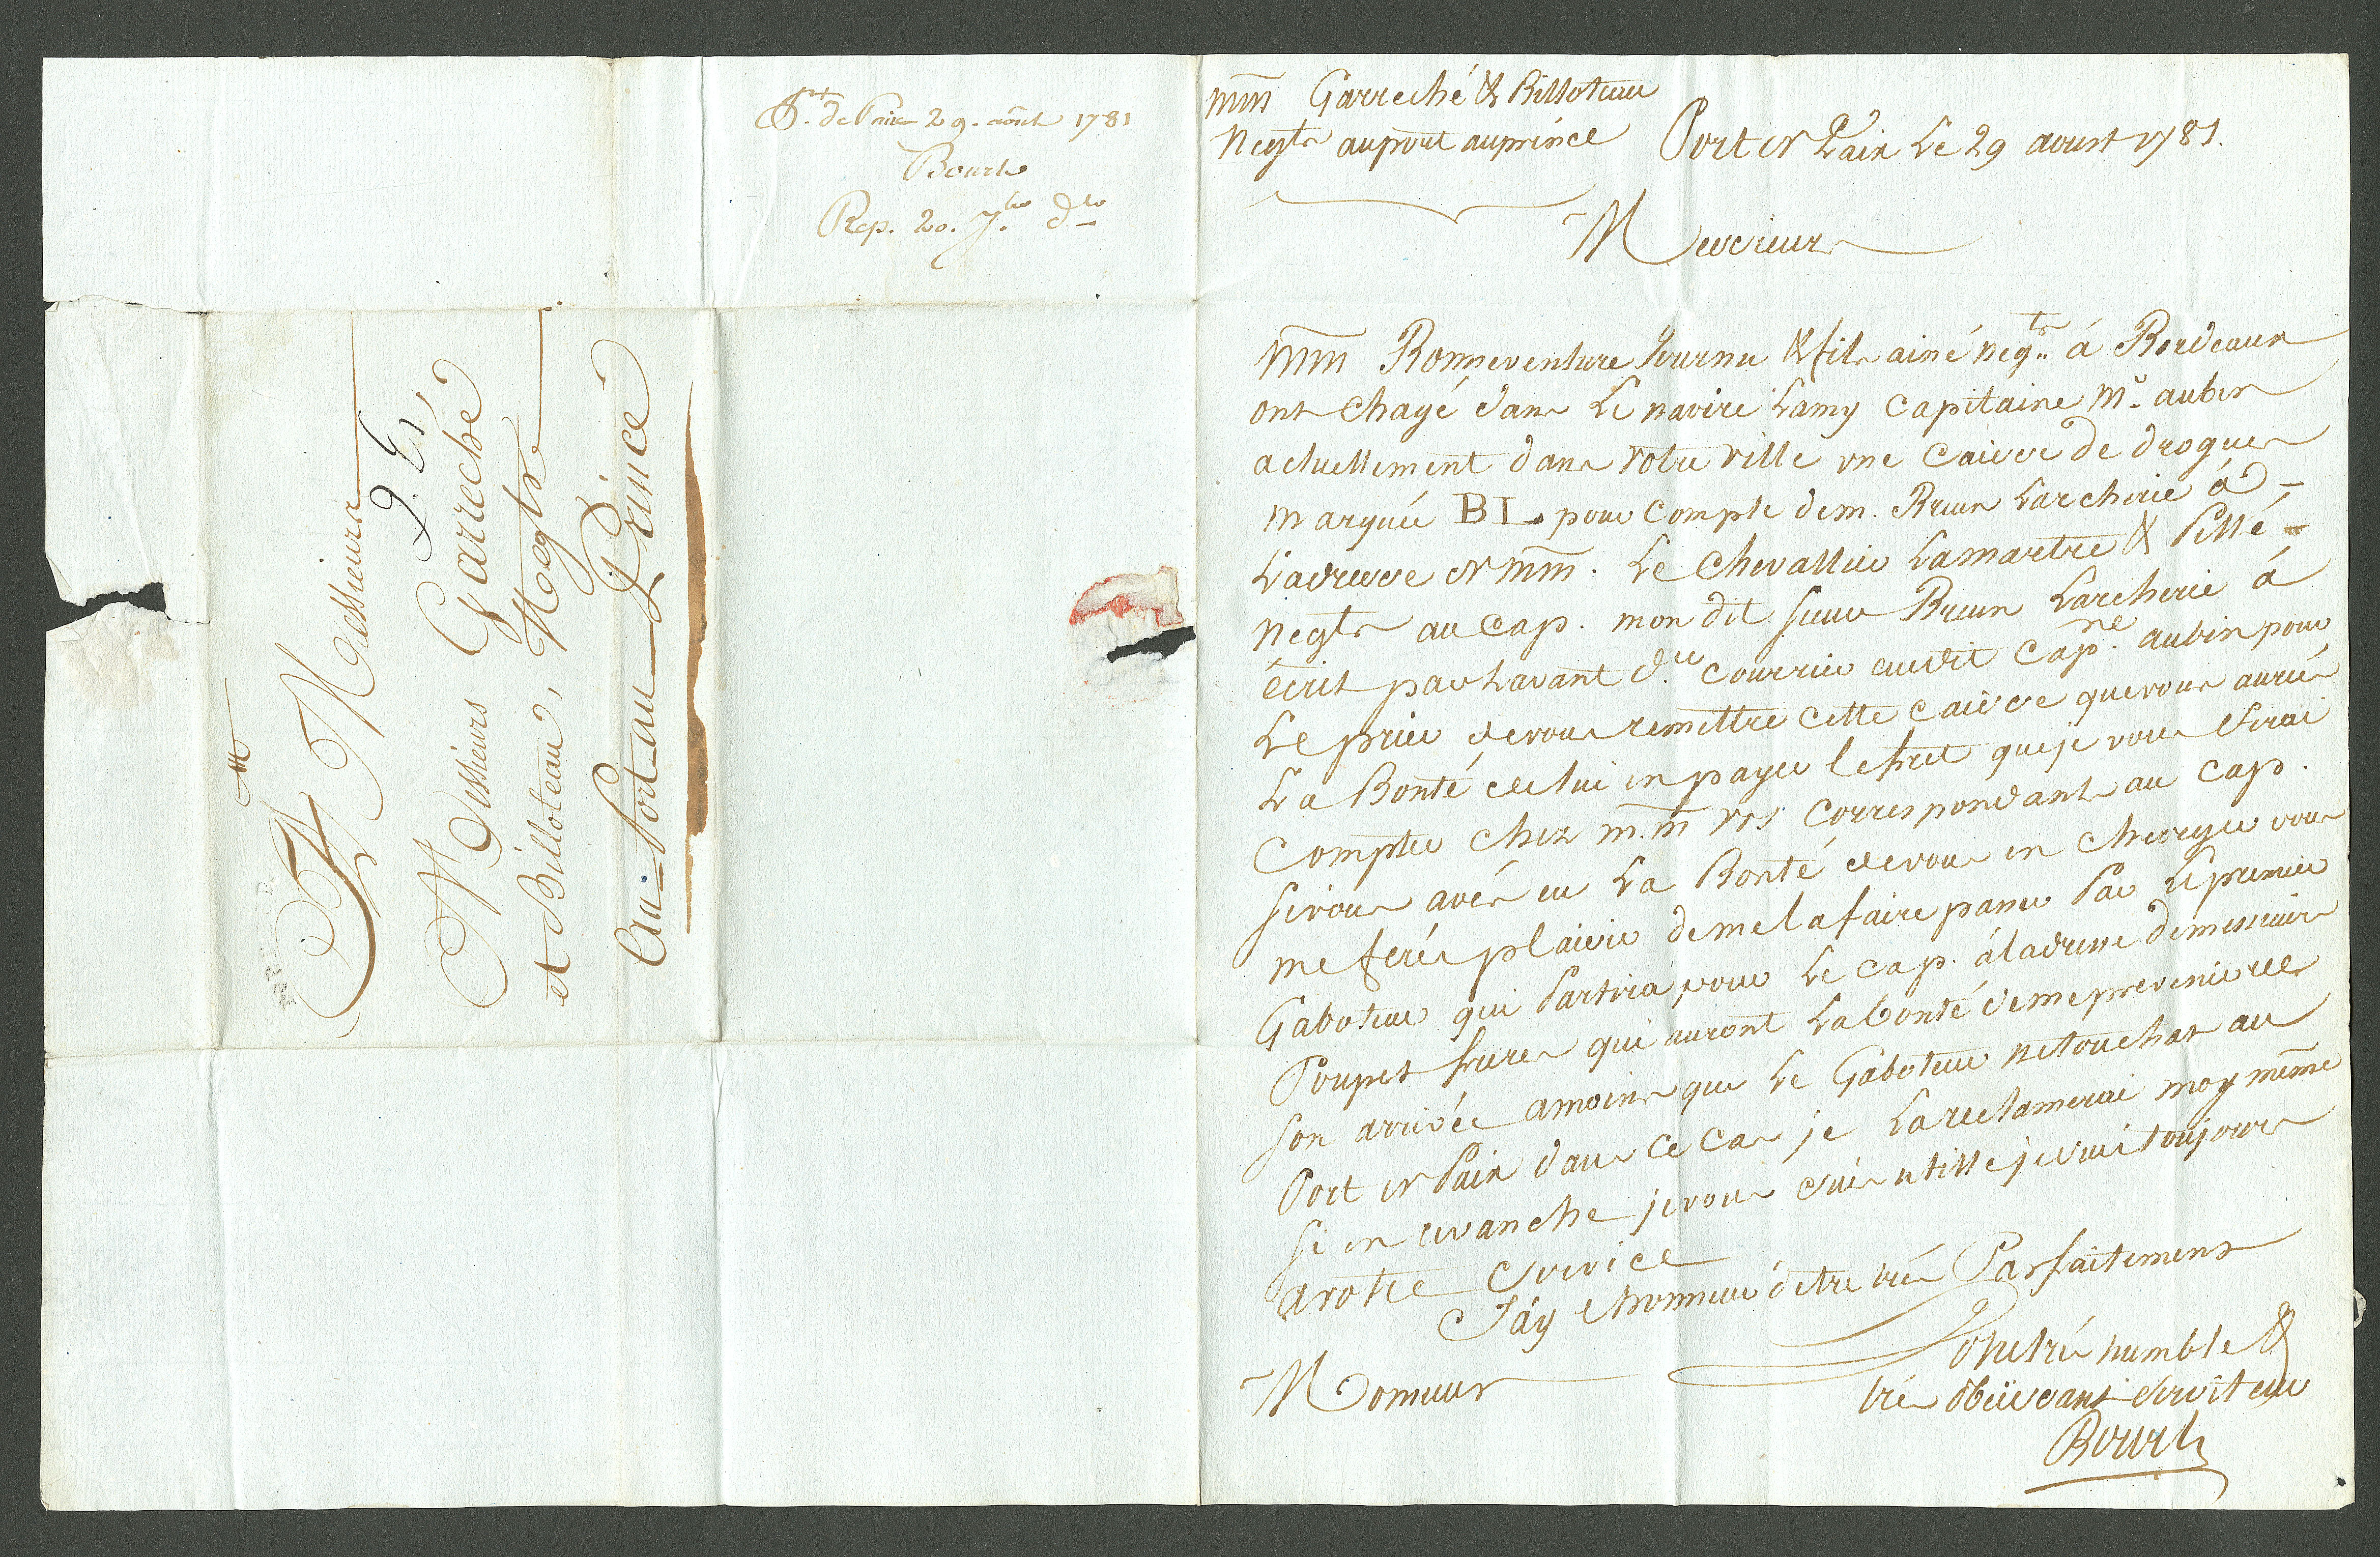 Pt. de Paix 29. août 1781
Bourl
Rep. 20. 7.bre d.to
A Messieurs
Messieurs Garreché
et Billoteau, Negts
Au Port au Prince
mm Garreché & Billoteau
Negts au port au prince Port de Paix Le 29 aoust 1781.
Messieurs
Mm Bonneventure Journu & fils ainé negts á Bordeaux
ont chagé dans Le navire Lamy Capitaine Mr. aubin
actuellement dans votre ville une Caisse de drogues
marquée BL pour Compte de m. Brun Larcherie á
L'adresse de mm. Le Chevallier Lamartre & Pillé
Negts au Cap. mon dit sieur Brun Larcherie á
écrit par Lavant d.er Courrier audit Capne. aubin pour
Le prier de vous remettre cette caisse que vous aurés
La Bonté de lui en payer le fret que je vous ferai
Compter chez m.m vos Correspondants au Cap.
si vous avés eu La Bonté de vous en charger vous
me ferés plaisir de me la faire passer Par Le premier
Gaboteur qui Partira pour Le Cap. á l'adresse de messieurs
Poupet freres qui auront La bonté de me prevenir de
son arrivée amoins que Le Gaboteur ne touchat au
Port de Paix dans ce Cas je La reclamerai moy même
si en revanche je vous suis utille je suis toujours
a votre Service
J'áy L'honneur d'etre trés Parfaitement
Messieurs Votre trés humble &
trés obeissant Serviteur
Bourl